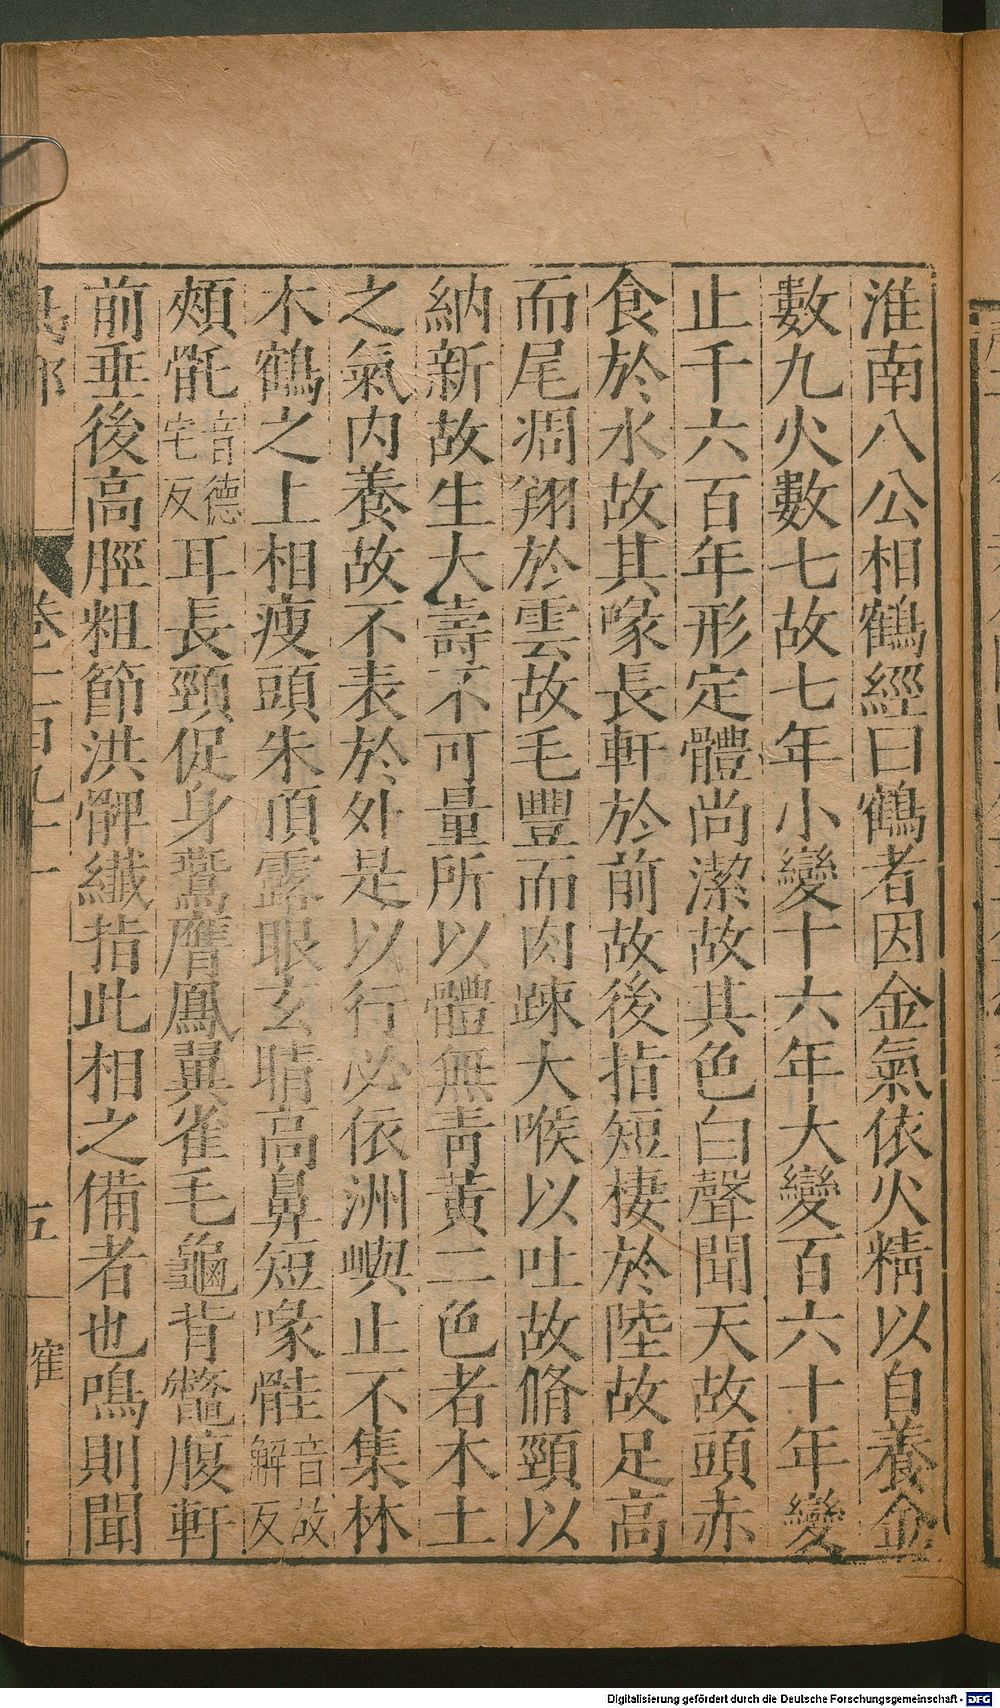 淮南八公相鶴經曰鶴者因金氣依火精以自養金
數九火數七故七年小變十六年大變百六十年變
止千六百年形定體尚潔故其色白聲聞天故頭赤
食於水故其喙長軒於前故後指短棲於陸故足高
而尾凋翔於雲故毛豐而肉疎大喉以吐故脩頸以
納新故生大壽不可量所以體無青黃二色者木土
之氣內養故不表於外是以行必依洲嶼止不集林
木鶴之上相瘦頭朱頂露眼玄睛高鼻短喙䯓音故解反
頰䯌音德宅反耳長頸促身鴜膺鳳翼雀毛龜背鼈腹軒
前垂後高脛粗節洪髀纖指此相之備者也鳴則聞
鳥部 卷二百九十一 五
Digitalisierung gefördert durch die Deutsche Forschungsgemeinschaft - DFG